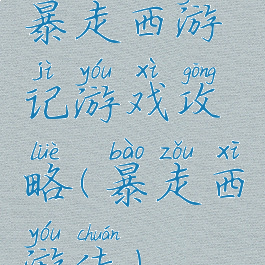 暴走西游
jì yóu xì gōng
记游戏攻
lüè bào zǒu xī
略(暴走西
yóu chuán
游传)